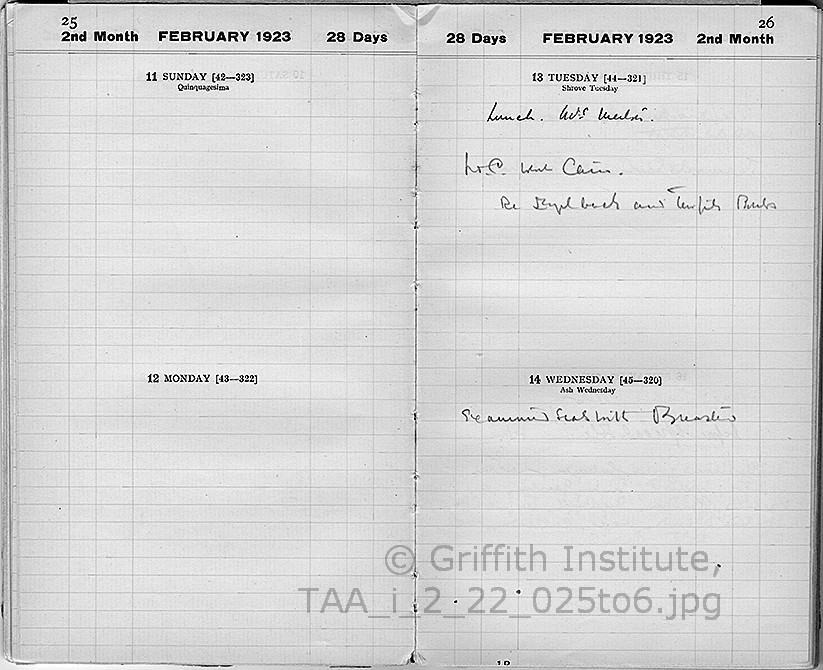 25
2nd Month FEBRUARY 1923 28 Days
11 SUNDAY [42—323]
Quinquagesima
12 MONDAY [43—322]
26
28 Days FEBRUARY 1923 2nd Month
13 TUESDAY [44—321]
Shrove Tuesday
Lunch. Mrs
went Cairo.
Re and
14 WEDNESDAY [45—320]
Ash Wednesday
Examined Seals with Breasted
© Griffith Institute,
TAA_i_2_22_025to6.jpg